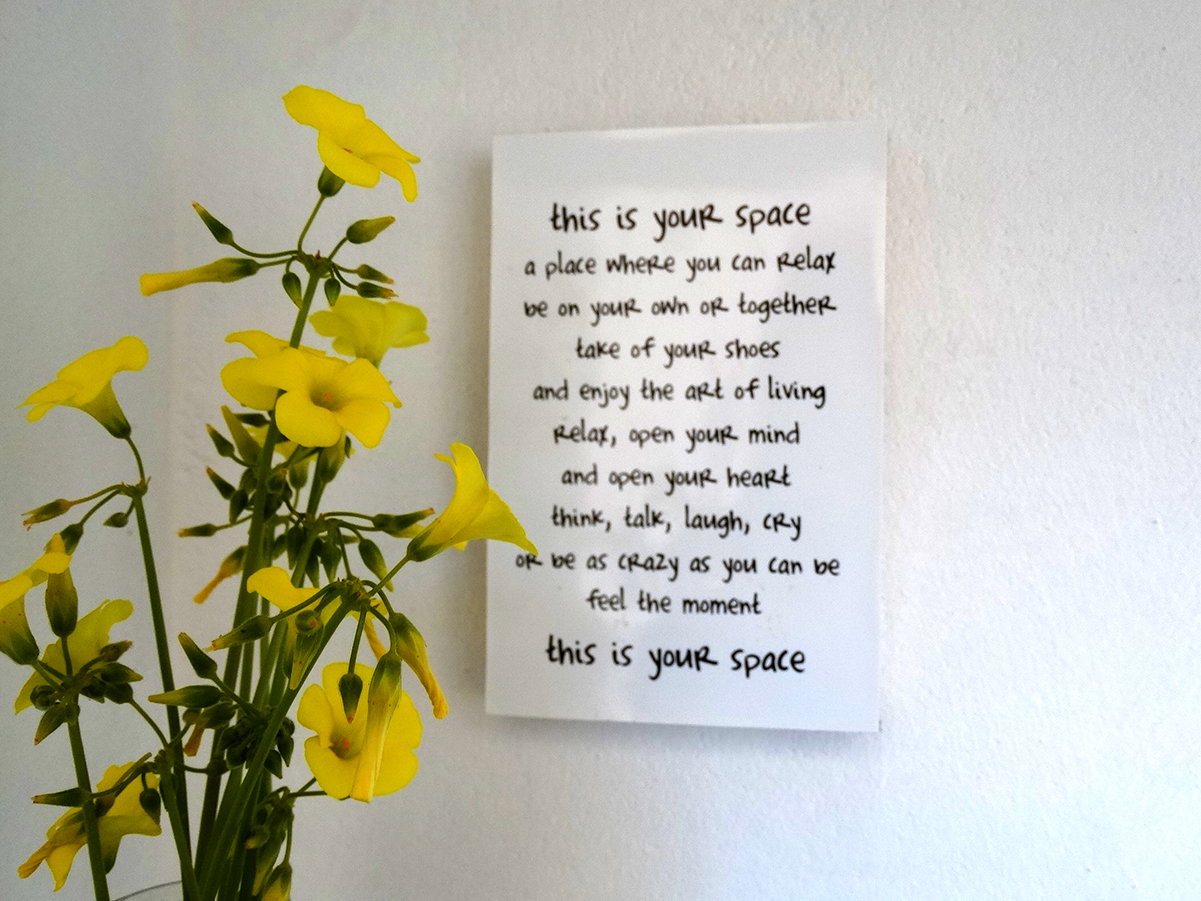 this is your space
a place where you can relax
be on your own or together
take of your shoes
and enjoy the art of living
relax, open your mind
and open your heart
think, talk, laugh, cry
or be as crazy as you can be
feel the moment
this is your space